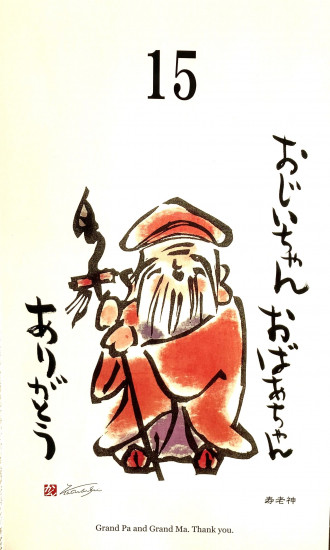 15
おじいちゃん おばあちゃん
ありがとう
寿老神
Grand Pa and Grand Ma. Thank you.